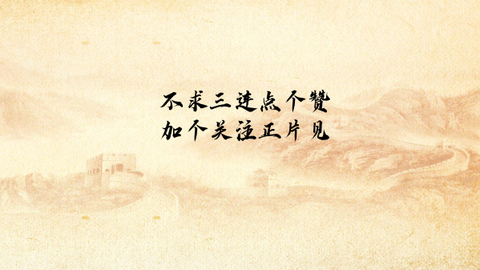 不求三连点个赞
加个关注正片见